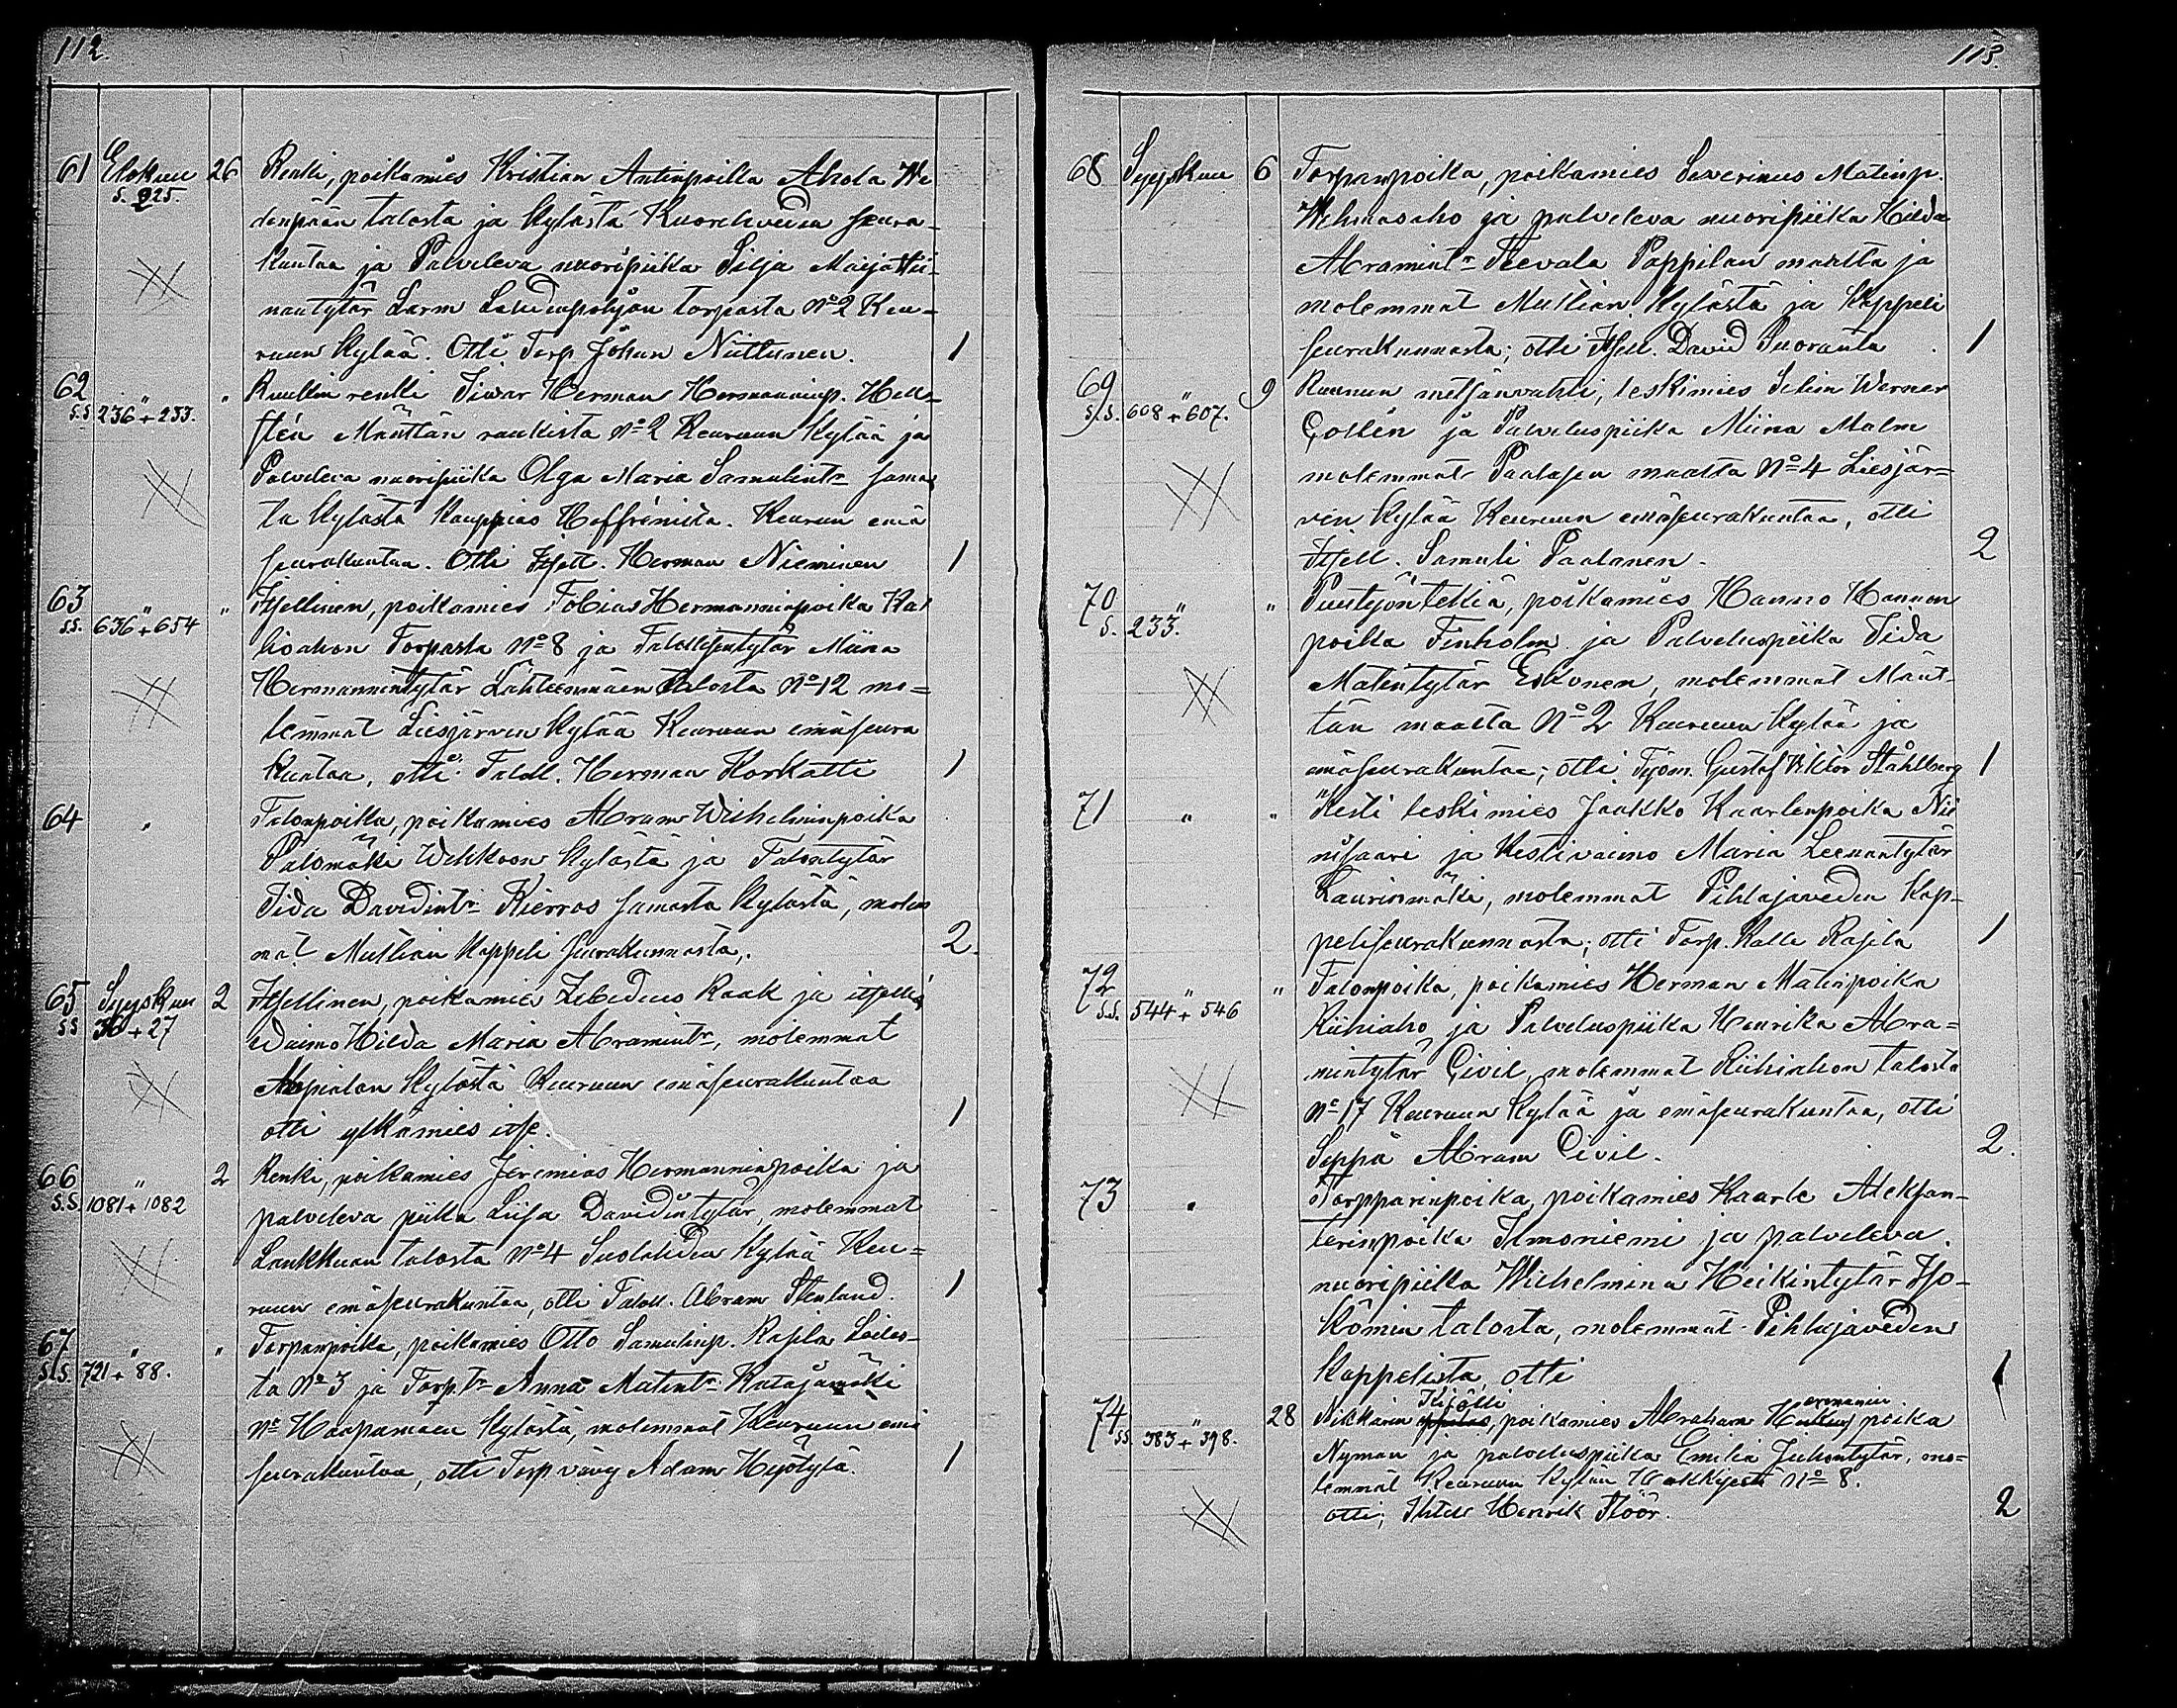 112.
61 Elokuu 26 Renki, poikamies Kristian Antinpoika Ahola We
s. 225. denpään talosta ja kylästä Kuorehveden seura-
kuntaa ja Palveleva nuoripiika Silja Maija Wii-
nantytär Larm Lahdenpohjan torpasta No 2 Keu-
ruun kylää. Otti Torp. Johan Niittunen. 1
62 " " Ruukin renki Iiwar Herman Hermanninp. Hell-
s.s. 236 + 233. stén Mänttän ruukista No 2 Keuruun kylää ja
Palveleva nuoripiika Olga Maria Samulintr samas
ta kylästä kauppias Hoffrénilta. Keuruun emä
seurakuntaa. Otti Itsell. Herman Nieminen 1
63 " " Itsellinen, poikamies Tobias Hermanninpoika Kal
s.s. 636 + 654 lioahon Torpasta No 8 ja Talollisentytär Miina
Hermannintytär Lähteenmäen talosta No 12 mo=
lemmat Liesjärven kylää Keuruun emäseura
kuntaa, otti: Taloll. Herman Korkatti 1
64 " Talonpoika, poikamies Abram Wilhelminpoika
Palomäki Wehkoon kylästä ja Talontytär
Iida Davidintr Kierros samasta kylästä, molem
mat Multian kappeli seurakunnasta. 2.
65 Syyskuu 2 Itsellinen, poikamies Zebedeus Raak ja itsellis
s.s. 36 + 27 waimo Hilda Maria Abramintr, molemmat
Ampialan kylästä Keuruun emäseurakuntaa
otti ylkämies itse. 1
66 " 2 Renki, poikamies Jeremias Hermanninpoika ja
s.s. 1081 + 1082 palveleva piika Liisa Davidintytär, molemmat
Laukkuan talosta No 4 Suolahden kylää Keu=
ruun emäseurakuntaa, otti Taloll. Abram Stenlund. 1
67 " " Torpanpoika, poikamies Otto Samulinp. Rajala
s.s. 721 + 88. ta No 3 ja Torp.tr Anna Matintr Katajamäki
No Haapamäen kylästä, molemmat Keuruun emä
seurakuntaa, otti Torp.vävy Adam Hyötylä. 1
113.
68 Syyskuu 6 Torpanpoika, poikamies Severinus Matinp.
Wehmasaho ja palveleva nuoripiika Hilda
Abramintr Teevala Pappilan maalta ja
molemmat Multian kylästä ja kappeli
seurakunnasta; otti Itsell. David Puoranta 1
69 " 9 Ruunun metsänvahti, leskimies Selim Werner
s.s. 608 + 607. Collén ja Palveluspiika Miina Malm
molemmat Paalasen maalta No 4 Liesjär=
ven kylää Keuruun emäseurakuntaa, otti
Itsell. Samuli Paalanen. 2
70 " " Puutyöntekiä, poikamies Hanno Hannon
s. 233. poika Finholm ja Palveluspiika Iida
Matintytär Eskonen, molemmat Mänt-
tän maalta No 2 Keuruun kylää ja
emäseurakuntaa; otti Työm. Gustaf Viktor Ståhlberg 1
71 " " Kesti leskimies Jaakko Kaarlenpoika Nii
nisaari ja Kestivaimo Maria Leenantytär
Laurinmäki, molemmat Pihlajaveden kap-
peliseurakunnasta; otti Torp. Kalle Rajala 1
72 " " Talonpoika, poikamies Herman Matinpoika
s.s. 544 + 546 Riihiaho ja Palveluspiika Henrika Abra=
mintytär Civil, molemmat Riihiahon talosta
No 17 Keuruun kylää ja emäseurakuntaa, otti
Seppä Abram Civil. 2.
73 " Torpparinpoika, poikamies Kaarle Aleksan-
terinpoika Ilmoniemi ja palveleva
nuoripiika Wilhelmina Heikintytär Iso-
kömin talosta, molemmat Pihlajaveden
kappelista, otti 1
74 " 28 Nikkarin Kisälli, poikamies Abraham Hermannin poika
s.s. 383 + 398. Nyman ja palveluspiika Emilia Juhontytär, mo=
lemmat Keuruun kylän No 8.
otti; Henrik Flöör. 2